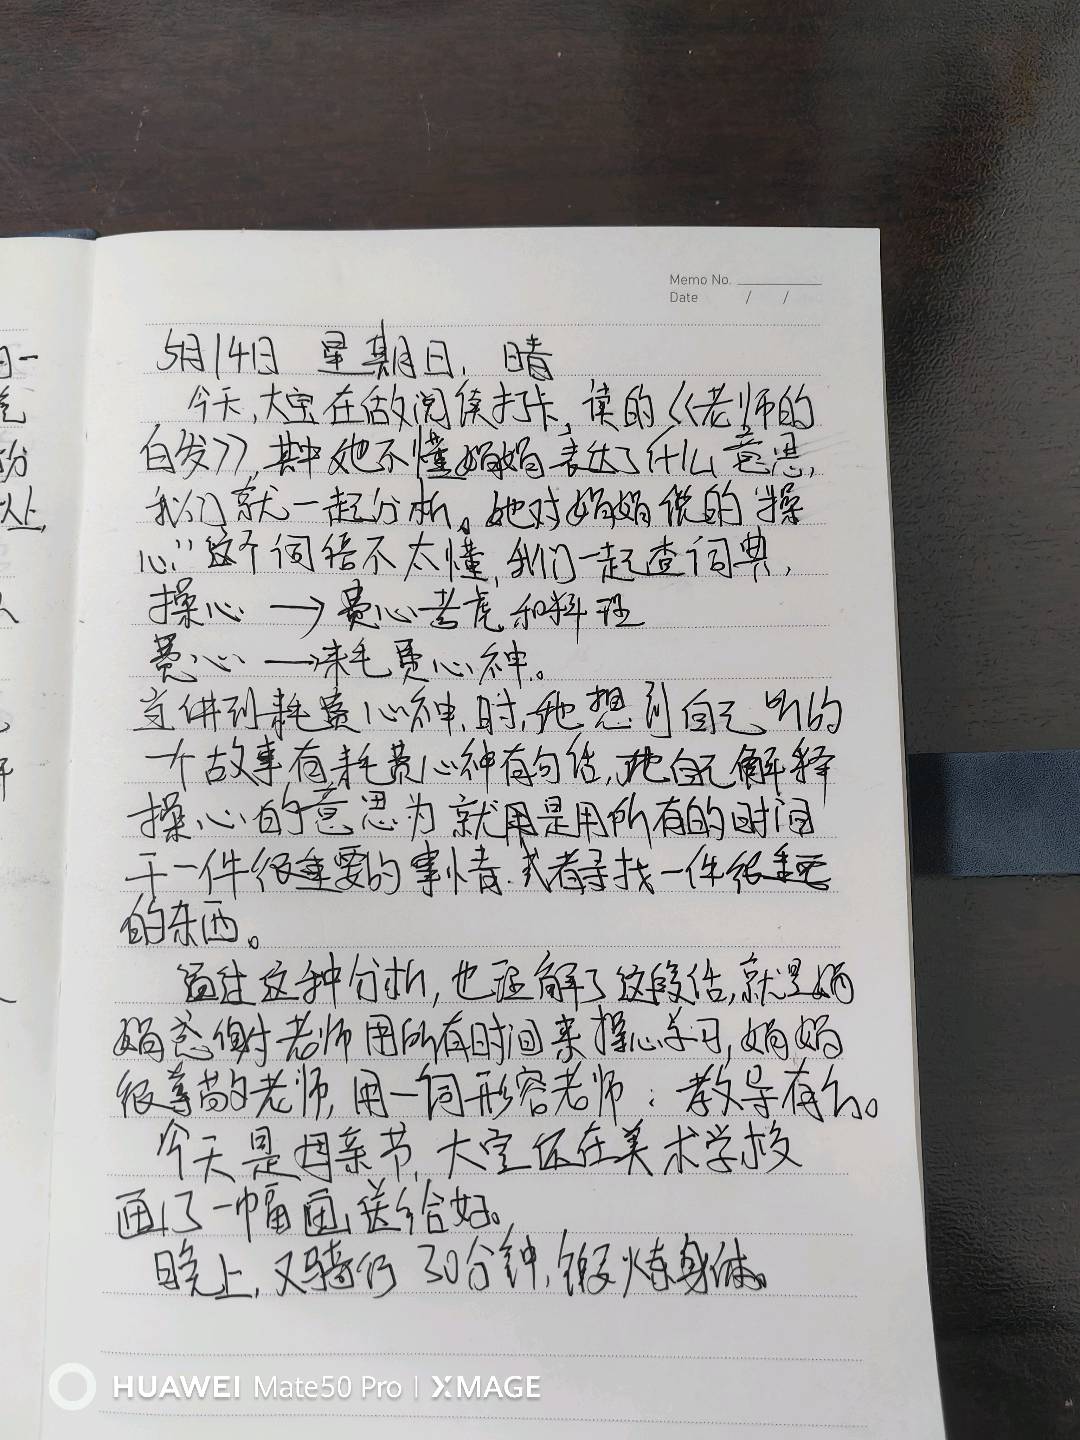 Memo No.
Date / /
5月14日 星期日, 晴
今天,大宝在做阅读打卡,读的《老师的
白发》,其中她不懂娟娟表达了什么意思,
我们就一起分析。她对娟娟说的"操
心"这个词语不太懂,我们一起查词典,
操心→费心考虑和料理
费心→耗费心神。
当讲到耗费心神时,她想到自己听的
一个故事有耗费心神有句话,她自己解释
操心的意思为就是用所有的时间
干一件很重要的事情.或者寻找一件很重要
的东西。
通过这种分析,也理解了这段话,就是娟
娟感谢老师用所有时间来操心学习,娟娟
很尊敬老师,用一词形容老师:教导有方。
今天是母亲节,大宝还在美术学校
画了一幅画送给妈。
晚上,又骑行30分钟,锻炼身体。
日一
分
以上,
HUAWEI Mate50 Pro | XMAGE